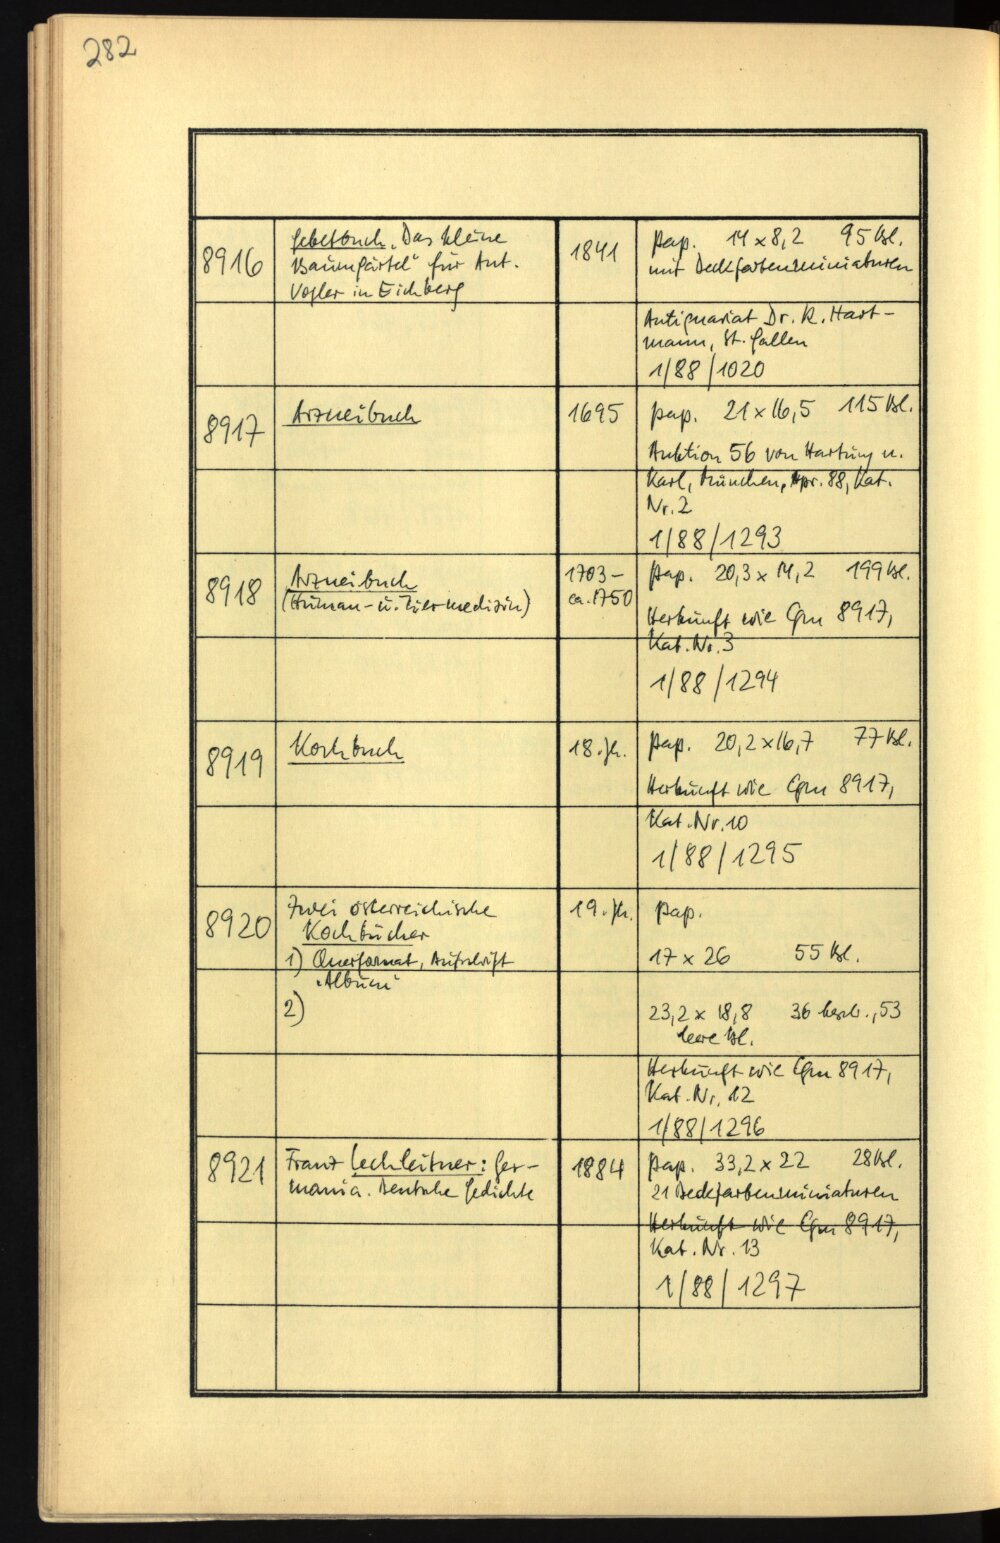 282
8916
Gebetbuch „Das kleine
Baumgärtel“ für Ant.
Vogler in Eichberg
1841
Pap. 14 x 8,2 95 Bl.
mit Deckfarbenminiaturen
Antiquariat Dr. K. Hart-
mann, St. Gallen
1/88/1020
8917
Arzneibuch
1695
Pap. 21 x 16,5 115 Bl.
Auktion 56 von Hartung u.
Karl, München, Apr. 88, Kat.
Nr. 2
1/88/1293
8918
Arzneibuch
(Human- u. Tiermedizin)
1703-
ca. 1750
Pap. 20,3 x 14,2 199 Bl.
Herkunft wie Cgm 8917,
Kat. Nr. 3
1/88/1294
8919
Kochbuch
18. Jh.
Pap. 20,2 x 16,7 77 Bl.
Herkunft wie Cgm 8917,
Kat. Nr. 10
1/88/1295
8920
Zwei österreichische
Kochbücher
1) Querformat, Aufschrift
„Album“
2)
19. Jh.
Pap.
17 x 26 55 Bl.
23,2 x 18,8 36 beschr., 53
leere Bl.
Herkunft wie Cgm 8917,
Kat. Nr. 12
1/88/1296
8921
Franz Lechleitner: Ger-
mania. Deutsche Gedichte
1884
Pap. 33,2 x 22 28 Bl.
21 Deckfarbenminiaturen
Herkunft wie Cgm 8917,
Kat. Nr. 13
1/88/1297